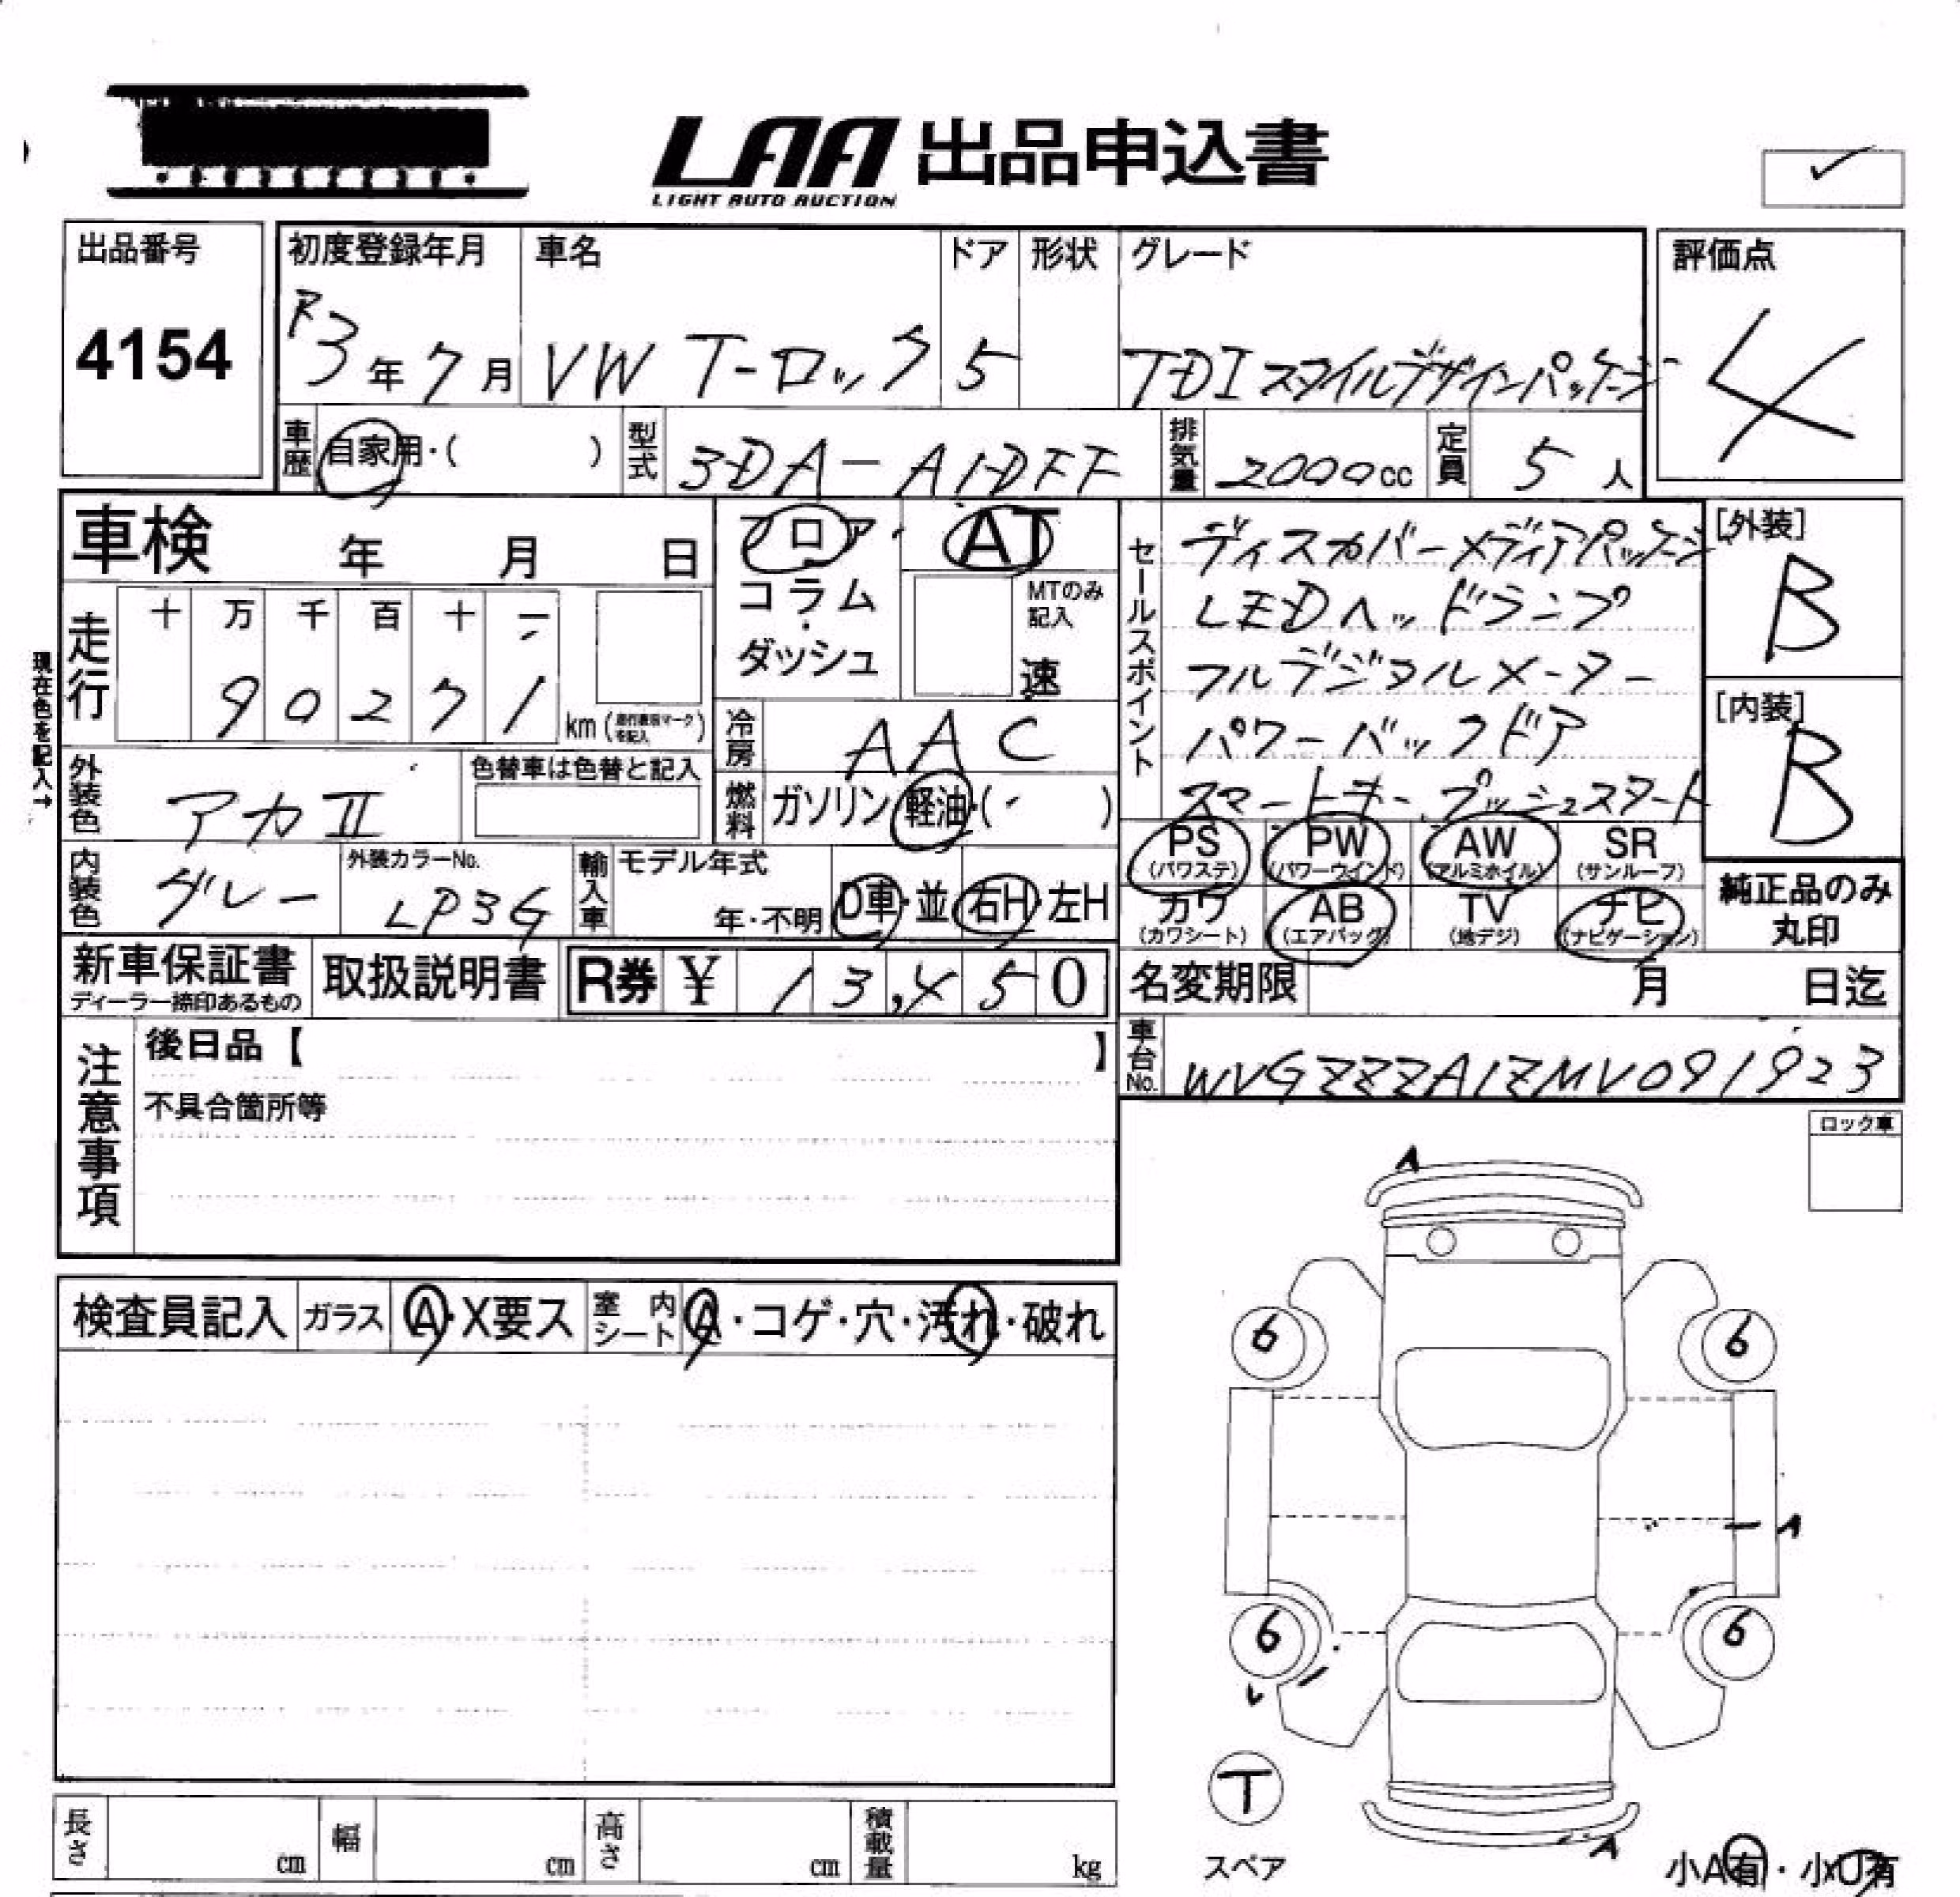 LAA 出品申込書
LIGHT AUTO AUCTION
✓
出品番号
4154
初度登録年月
R3年7月
車名
VW T-ロック
ドア
5
形状
グレード
TDIスタイルデザインパッケージ
評価点
4
車歴
自家用・( )
型式
3DA-A1DFF
排気量
2000cc
定員
5人
車検 年 月 日
フロア・
コラム・
ダッシュ
AT
MTのみ記入
速
セールスポイント
ディスカバーメディアパッケージ
LEDヘッドランプ
フルデジタルメーター
パワーバックドア
スマートキー、プッシュスタート
[外装]
B
[内装]
B
現在色を記入→
走行
十 万 千 百 十 一
9 0 2 7 1
km (走行表示マークを記入)
冷房
AAC
外装色
アカⅡ
色替車は色替と記入
燃料
ガソリン・軽油・( )
内装色
グレー
外装カラーNo.
LP3G
輸入車
モデル年式
年・不明
D車・並
右H・左H
PS
(パワステ)
PW
(パワーウインド)
AW
(アルミホイル)
SR
(サンルーフ)
カワ
(カワシート)
AB
(エアバッグ)
TV
(地デジ)
ナビ
(ナビゲーション)
純正品のみ
丸印
新車保証書
ディーラー捺印あるもの
取扱説明書
R券 ¥ 13,450
名変期限 月 日迄
注意事項
後日品【 】
不具合箇所等
車台No.
WVGZZZA1ZMV091923
ロック車
検査員記入
ガラス
A・X要ス
室内シート
A・コゲ・穴・汚れ・破れ
A
6
6
A
6
6
T
スペア
A
小A有・小U有
長さ cm
幅 cm
高さ cm
積載量 kg